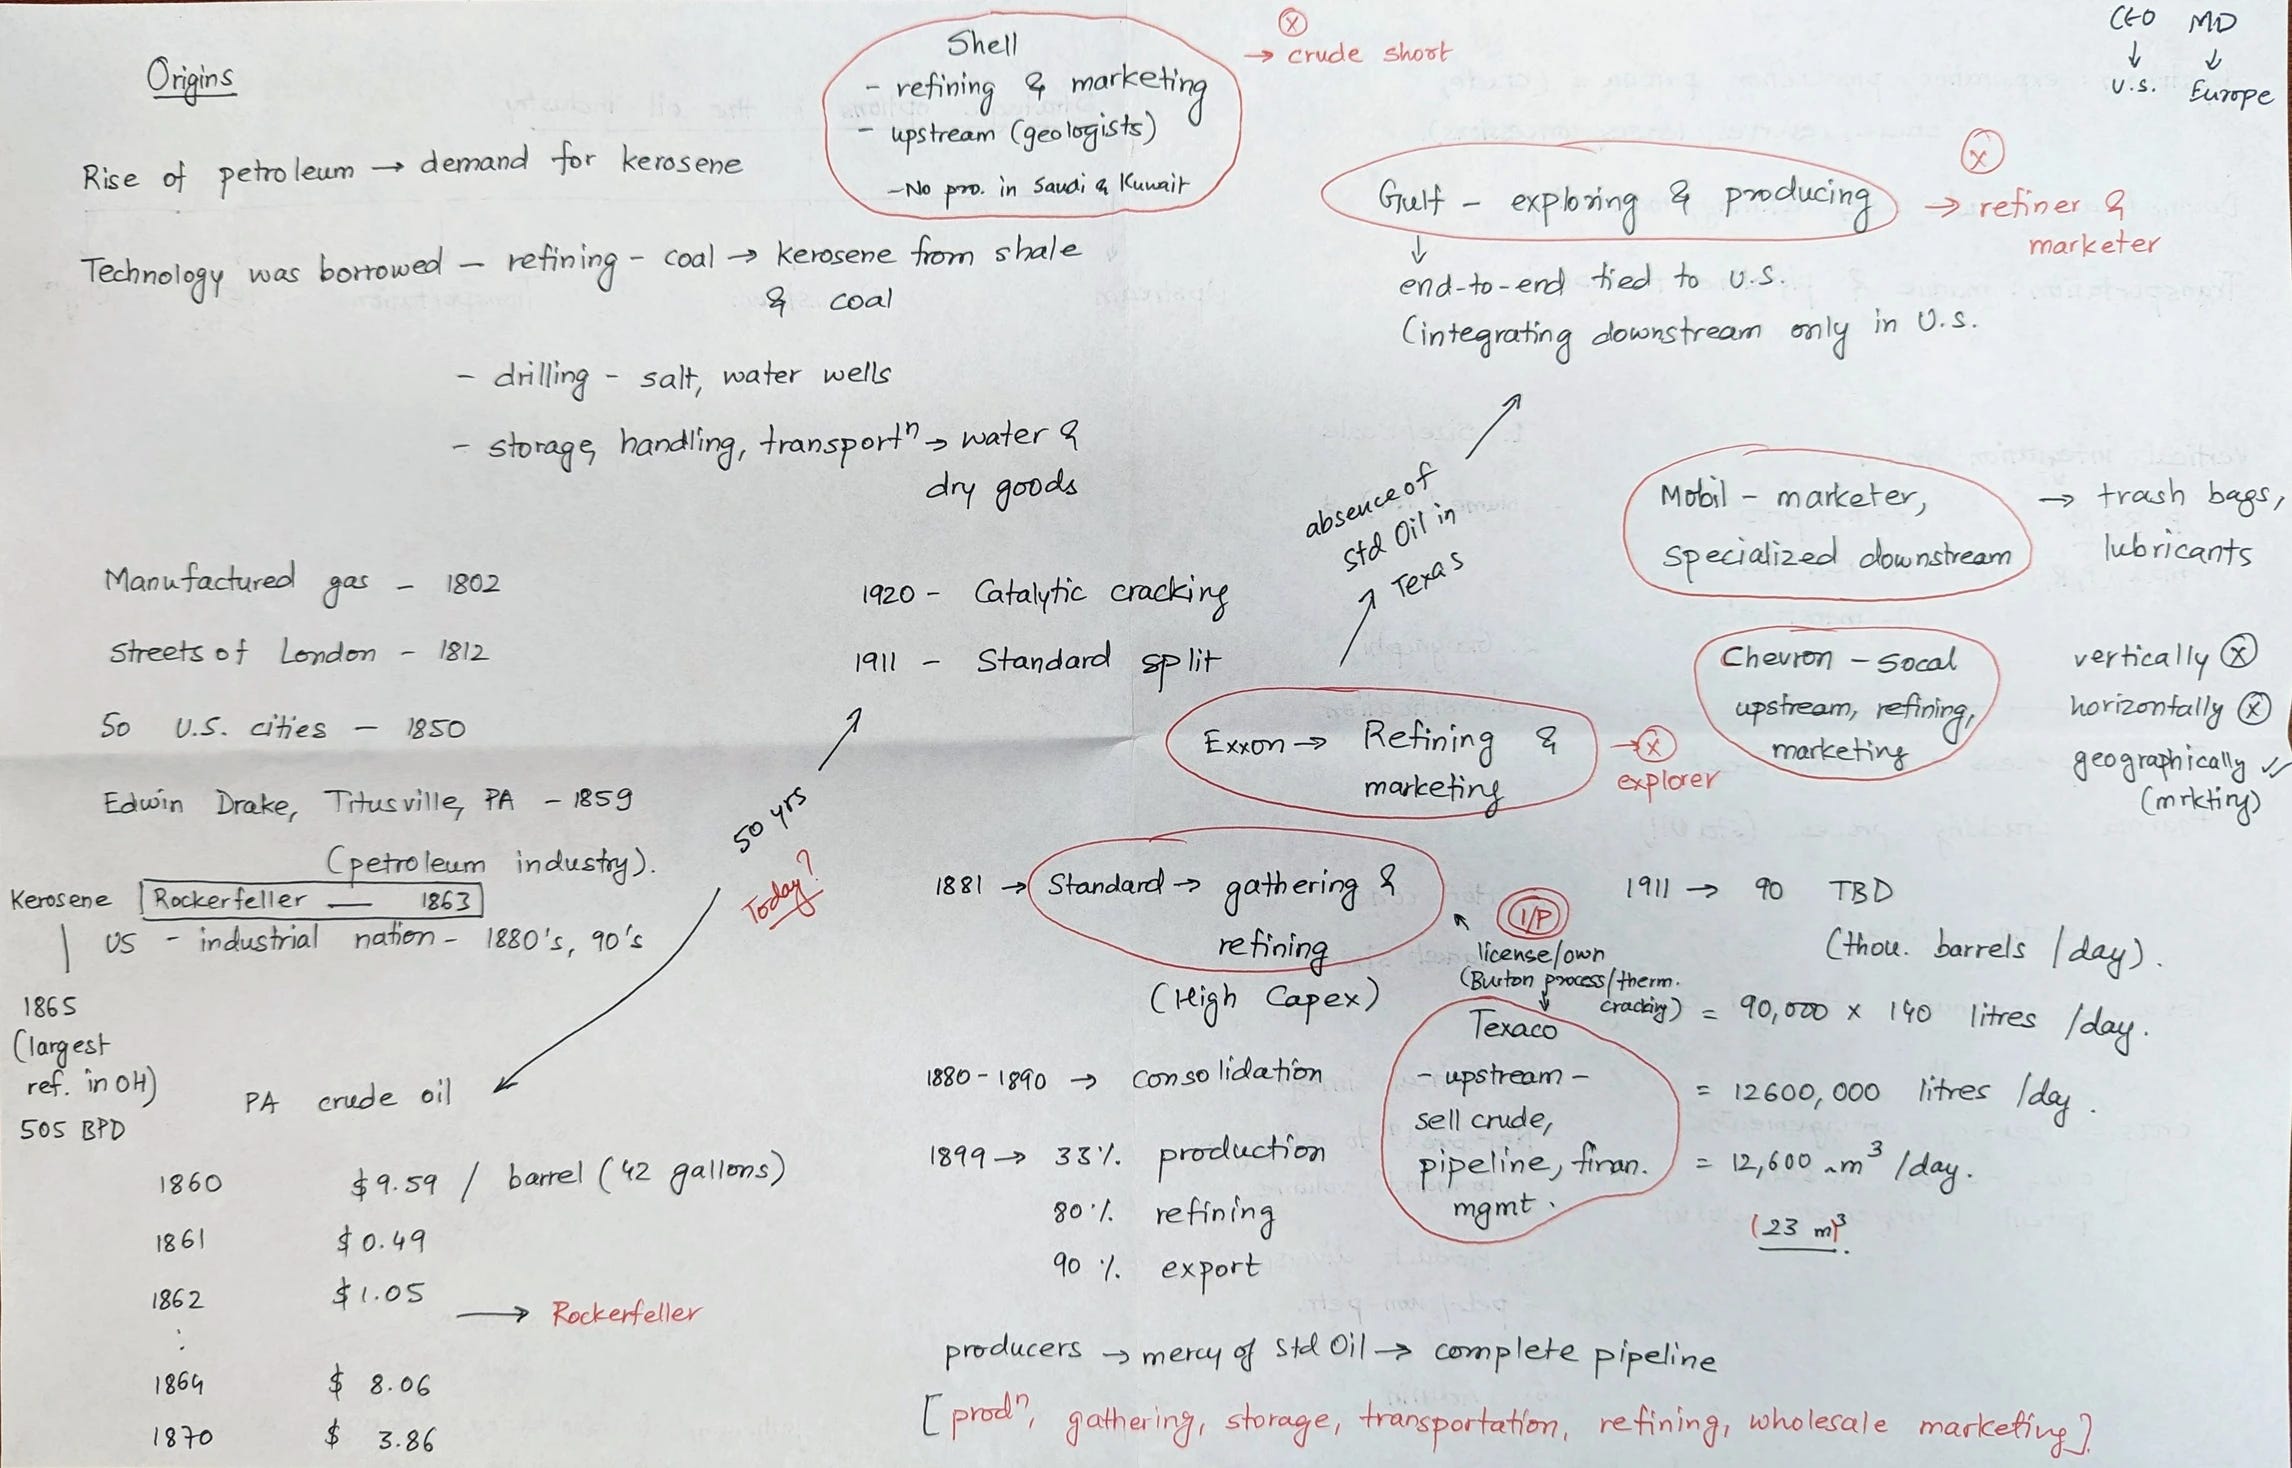 Origins
Rise of petroleum → demand for kerosene
Technology was borrowed – refining – coal → kerosene from shale
& coal
- drilling - salt, water wells
- storage, handling, transportⁿ → water &
dry goods
Manufactured gas - 1802
Streets of London - 1812
50 U.S. cities - 1850
Edwin Drake, Titusville, PA - 1859
(petroleum industry).
Kerosene
Rockerfeller — 1863
US - industrial nation - 1880's, 90's
1865
(largest
ref. in OH)
505 BPD
PA crude oil
1860 $9.59 / barrel (42 gallons)
1861 $0.49
1862 $1.05
→ Rockerfeller
:
1864 $ 8.06
1870 $ 3.86
50 yrs
Today?
Shell
- refining & marketing
- upstream (geologists)
- No pro. in Saudi & Kuwait
Ⓧ
→ crude short
1920 - Catalytic cracking
1911 - Standard split
absence of
std Oil in
Texas
Exxon → Refining &
marketing
→ Ⓧ
explorer
1881 → Standard → gathering &
refining
(High Capex)
1880-1890 → consolidation
1899 → 33% production
80% refining
90% export
producers → mercy of Std Oil → complete pipeline
[prodⁿ, gathering, storage, transportation, refining, wholesale marketing].
CEO MD
↓ ↓
U.S. Europe
Gulf - exploring & producing
Ⓧ
→ refiner &
marketer
↓
end-to-end tied to U.S.
(integrating downstream only in U.S.
Mobil - marketer,
specialized downstream
→ trash bags,
lubricants
Chevron - Socal
upstream, refining,
marketing
vertically Ⓧ
horizontally Ⓧ
geographically ✓
(mrkting)
I/P
license/own
(Burton process/therm.
cracking)
Texaco
- upstream -
sell crude,
pipeline, finan.
mgmt.
1911 → 90 TBD
(thou. barrels /day).
= 90,000 x 140 litres /day.
= 12600,000 litres /day.
= 12,600 m³ /day.
(23 m)³.